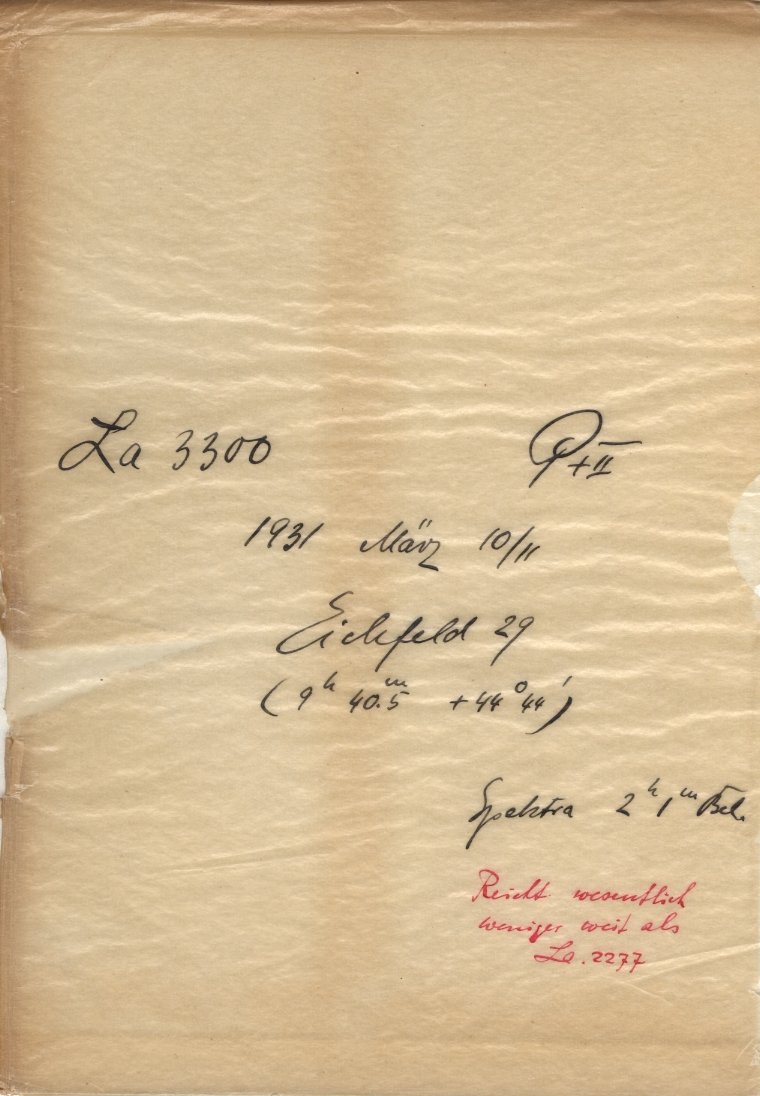 La 3300 P+II
1931 März 10/11
Eichfeld 29
(9h 40.5m +44°44')
Spektra 2h 1m Bel.
Reicht wesentlich
weniger weit als
La. 2277